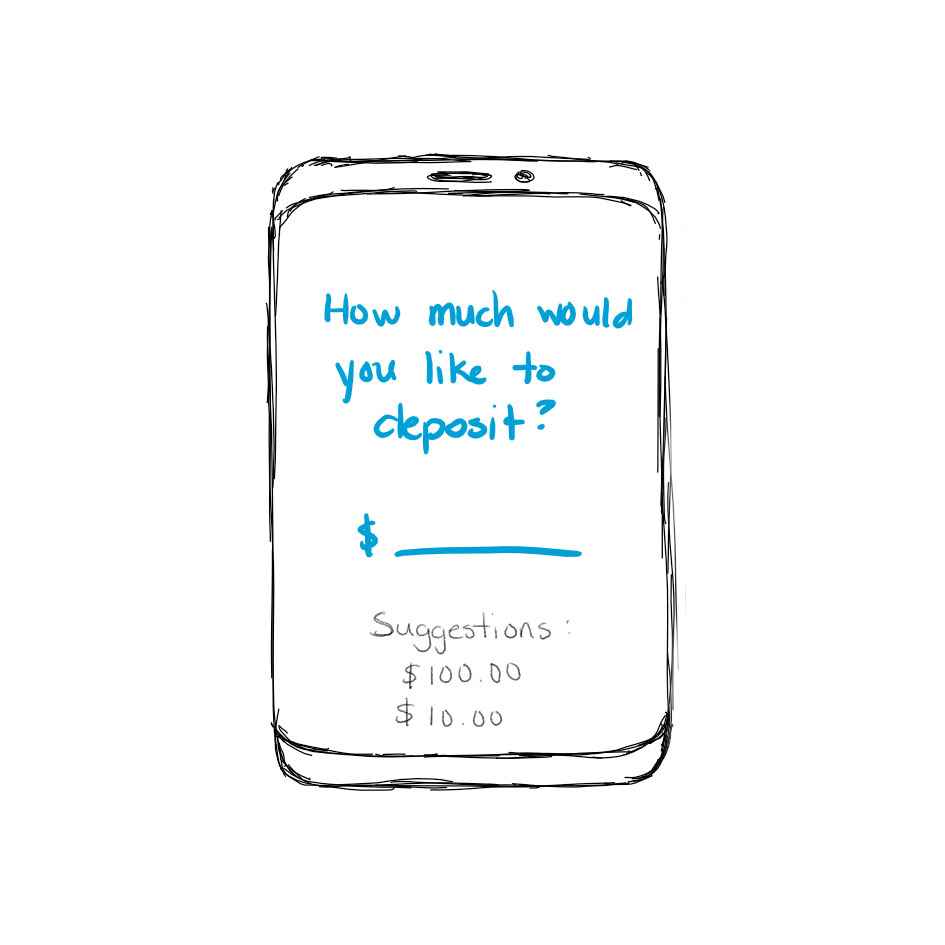 How much would
you like to
deposit?
$ ________
Suggestions:
$100.00
$10.00